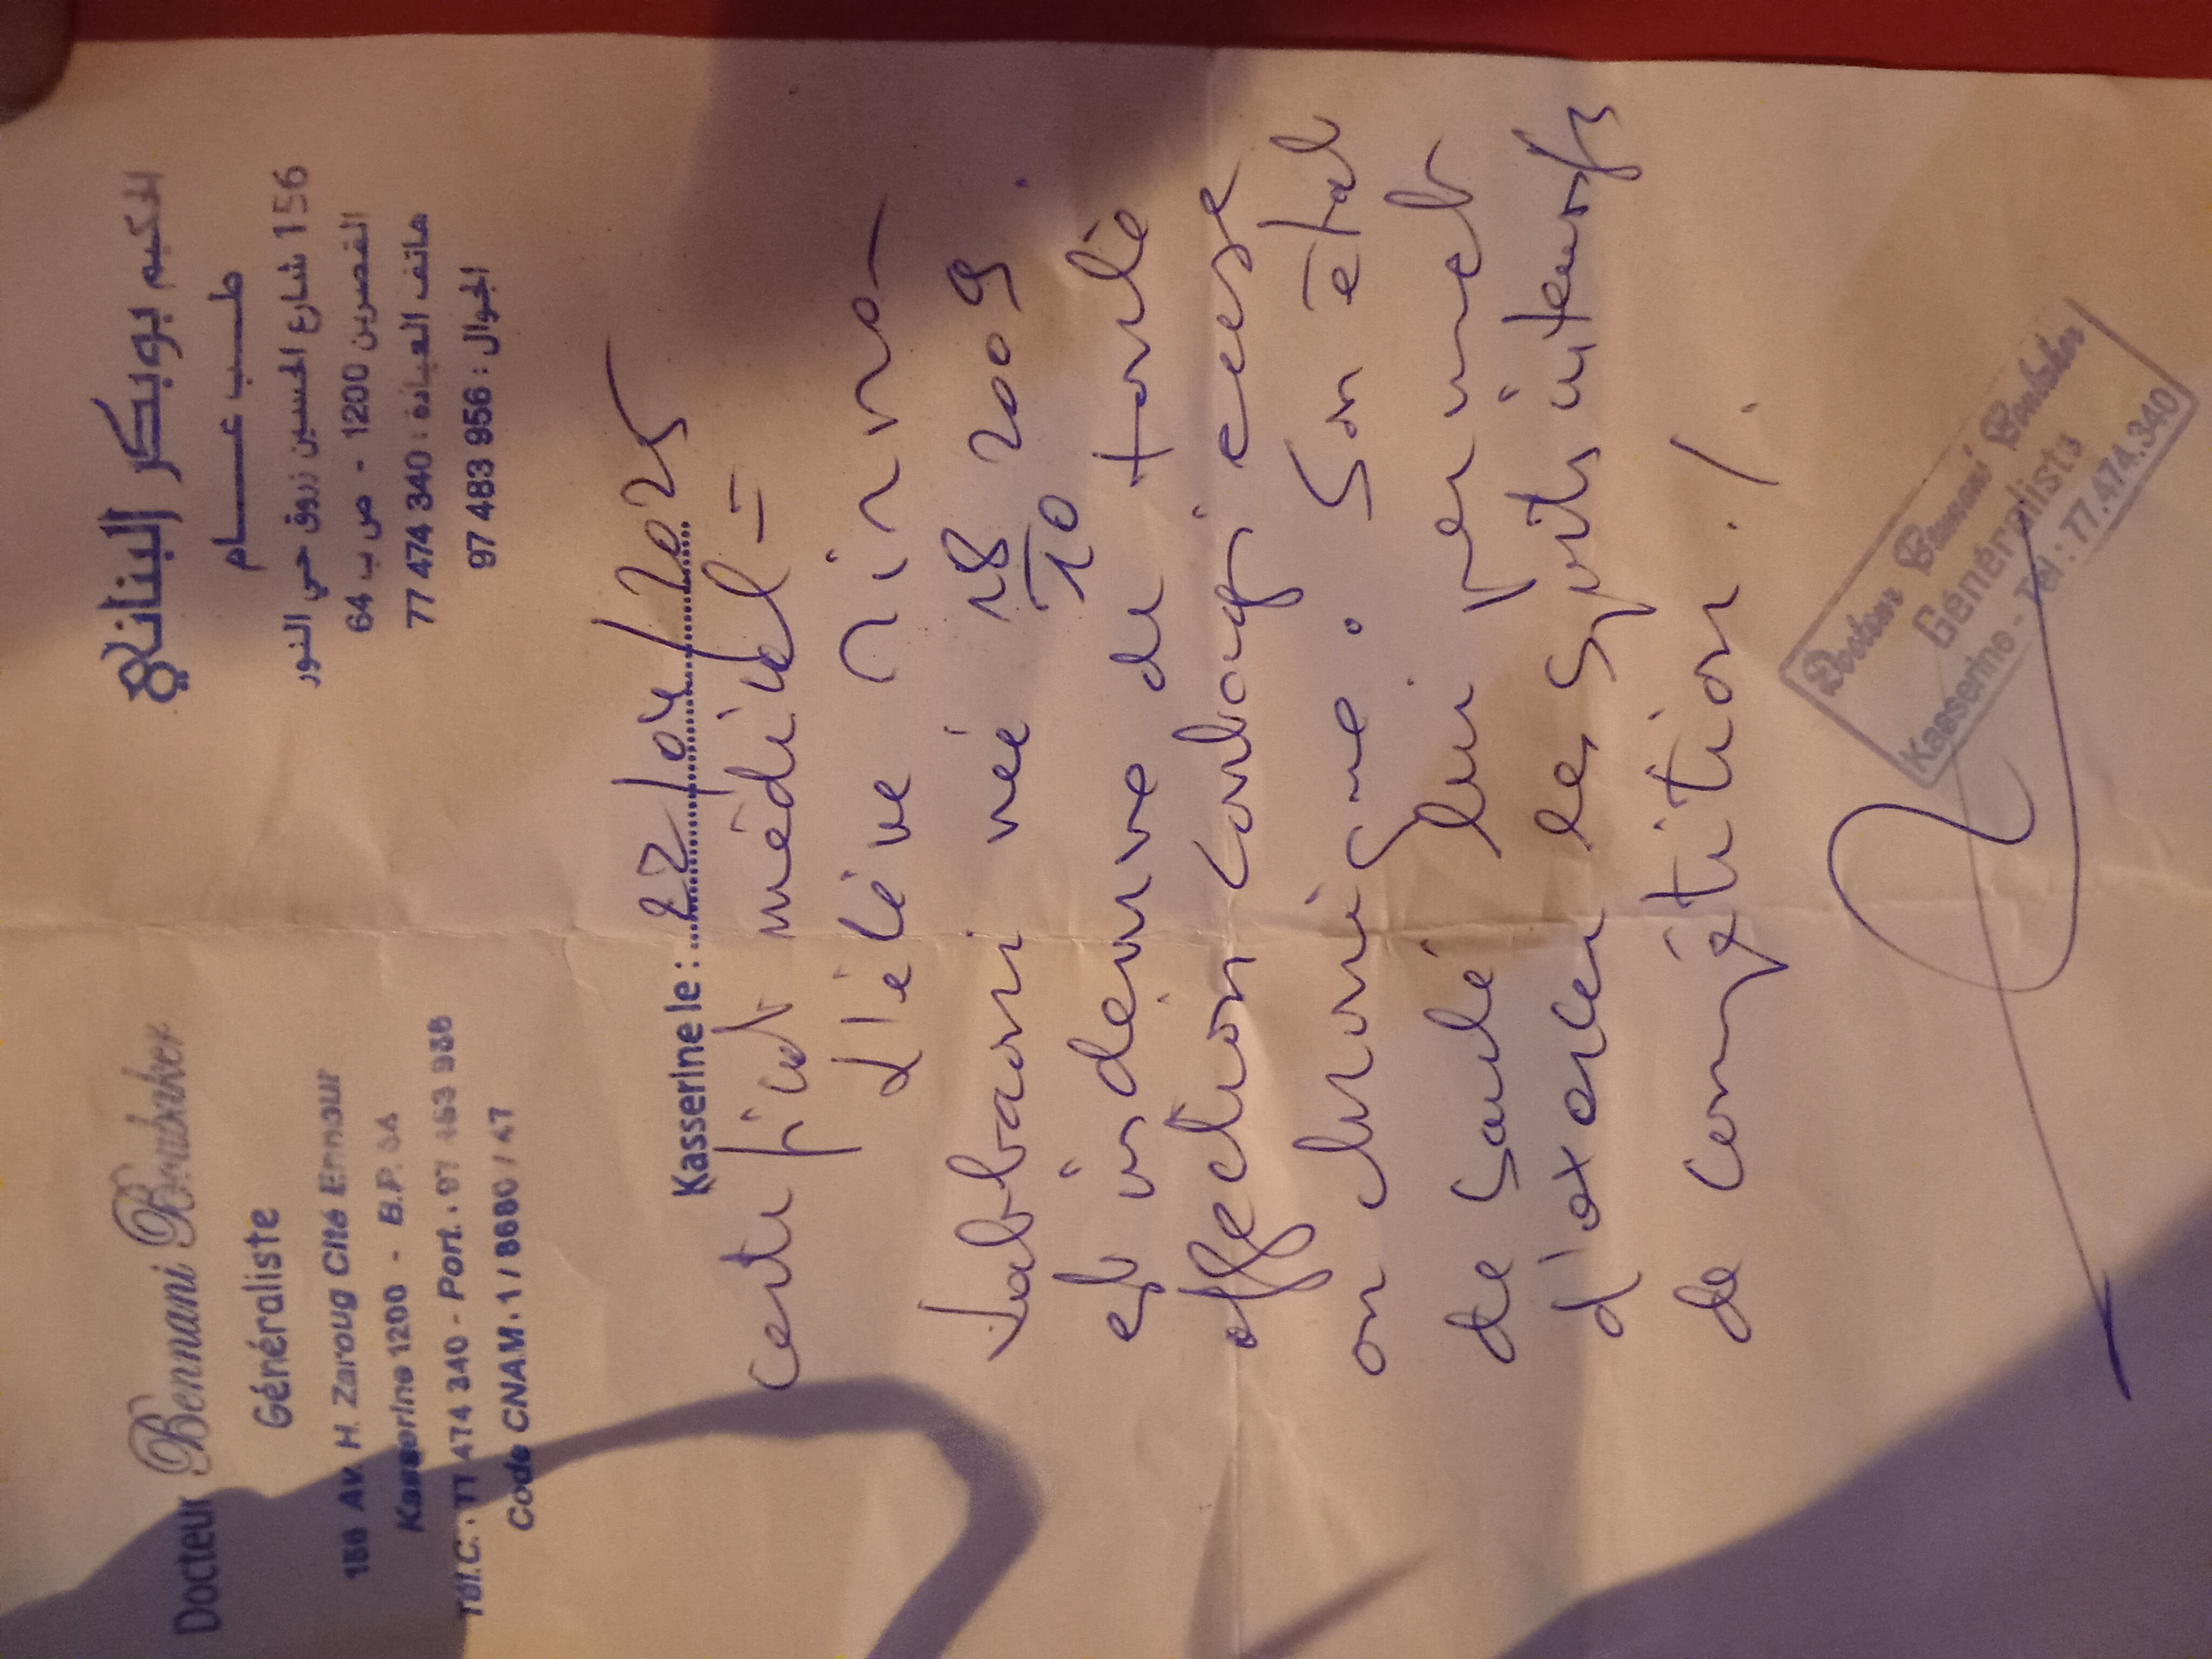 Docteur Bennani Boubaker
Généraliste
156 Av. H. Zaroug Cité Ennour
Kasserine 1200 - B.P. 64
Tél.C. : 77 474 340 - Port. : 97 483 956
Code CNAM : 1 / 8680 / 47
الحكيم بوبكر البناني
طب عام
156 شارع الحسين زروق حي النور
القصرين 1200 - ص ب 64
هاتف العيادة : 340 474 77
الجوال : 956 483 97
Kasserine le : 22/04/2025
certificat médical =
L'élève
née 18/10 2009
est indemne de toute
affection contagieuse
ou chronique. Son état
de santé lui permet
d'exercer les sports intensifs
de compétition ./.
Docteur Bennani Boubaker
Généraliste
Kasserine - Tél : 77.474.340